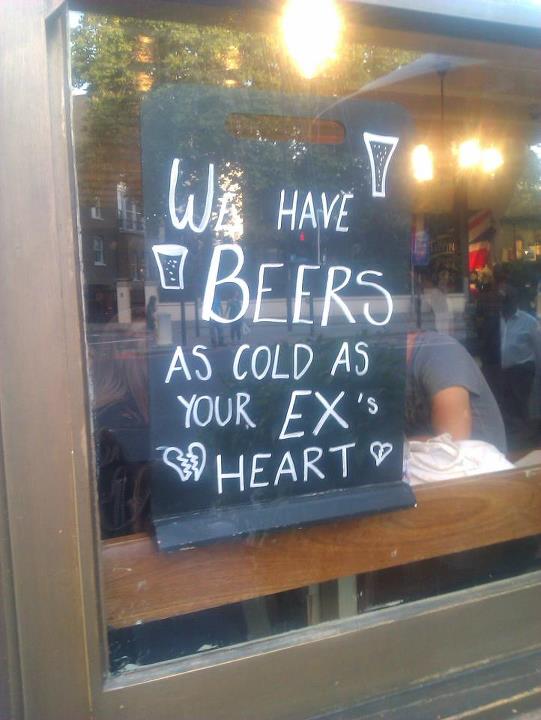 We HAVE
BEERS
AS COLD AS
YOUR EX's
HEART